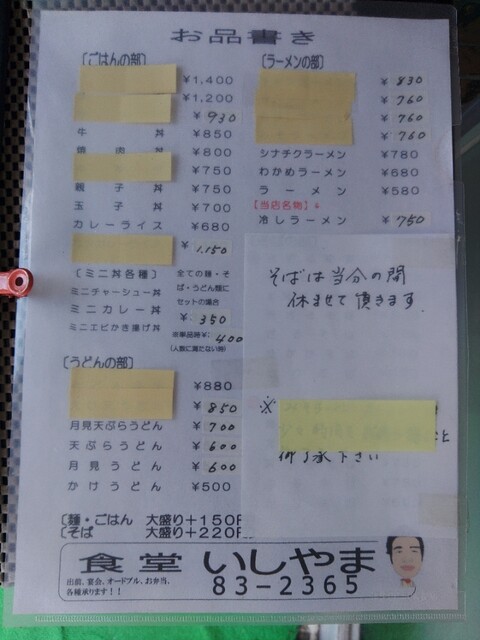 お品書き
〔ごはんの部〕
¥1,400
¥1,200
¥930
牛丼 ¥850
焼肉丼 ¥800
¥750
親子丼 ¥750
玉子丼 ¥700
カレーライス ¥680
¥1,150
〔ミニ丼各種〕
ミニチャーシュー丼
ミニカレー丼
ミニエビかき揚げ丼
全ての麺・そ
ば・うどん類に
セットの場合
¥350
※単品時¥400
(人数に満たない時)
〔うどんの部〕
¥880
¥850
月見天ぷらうどん ¥700
天ぷらうどん ¥600
月見うどん ¥600
かけうどん ¥500
〔麺・ごはん 大盛り+150
〔そば 大盛り+220
〔ラーメンの部〕
¥830
¥760
¥760
シナチクラーメン ¥780
わかめラーメン ¥680
ラーメン ¥580
【当店名物】
冷しラーメン ¥750
そばは当分の間
休ませて頂きます
※
御了承下さい
食堂 いしやま
出前、宴会、オードブル、お弁当、
各種承ります!!
83-2365